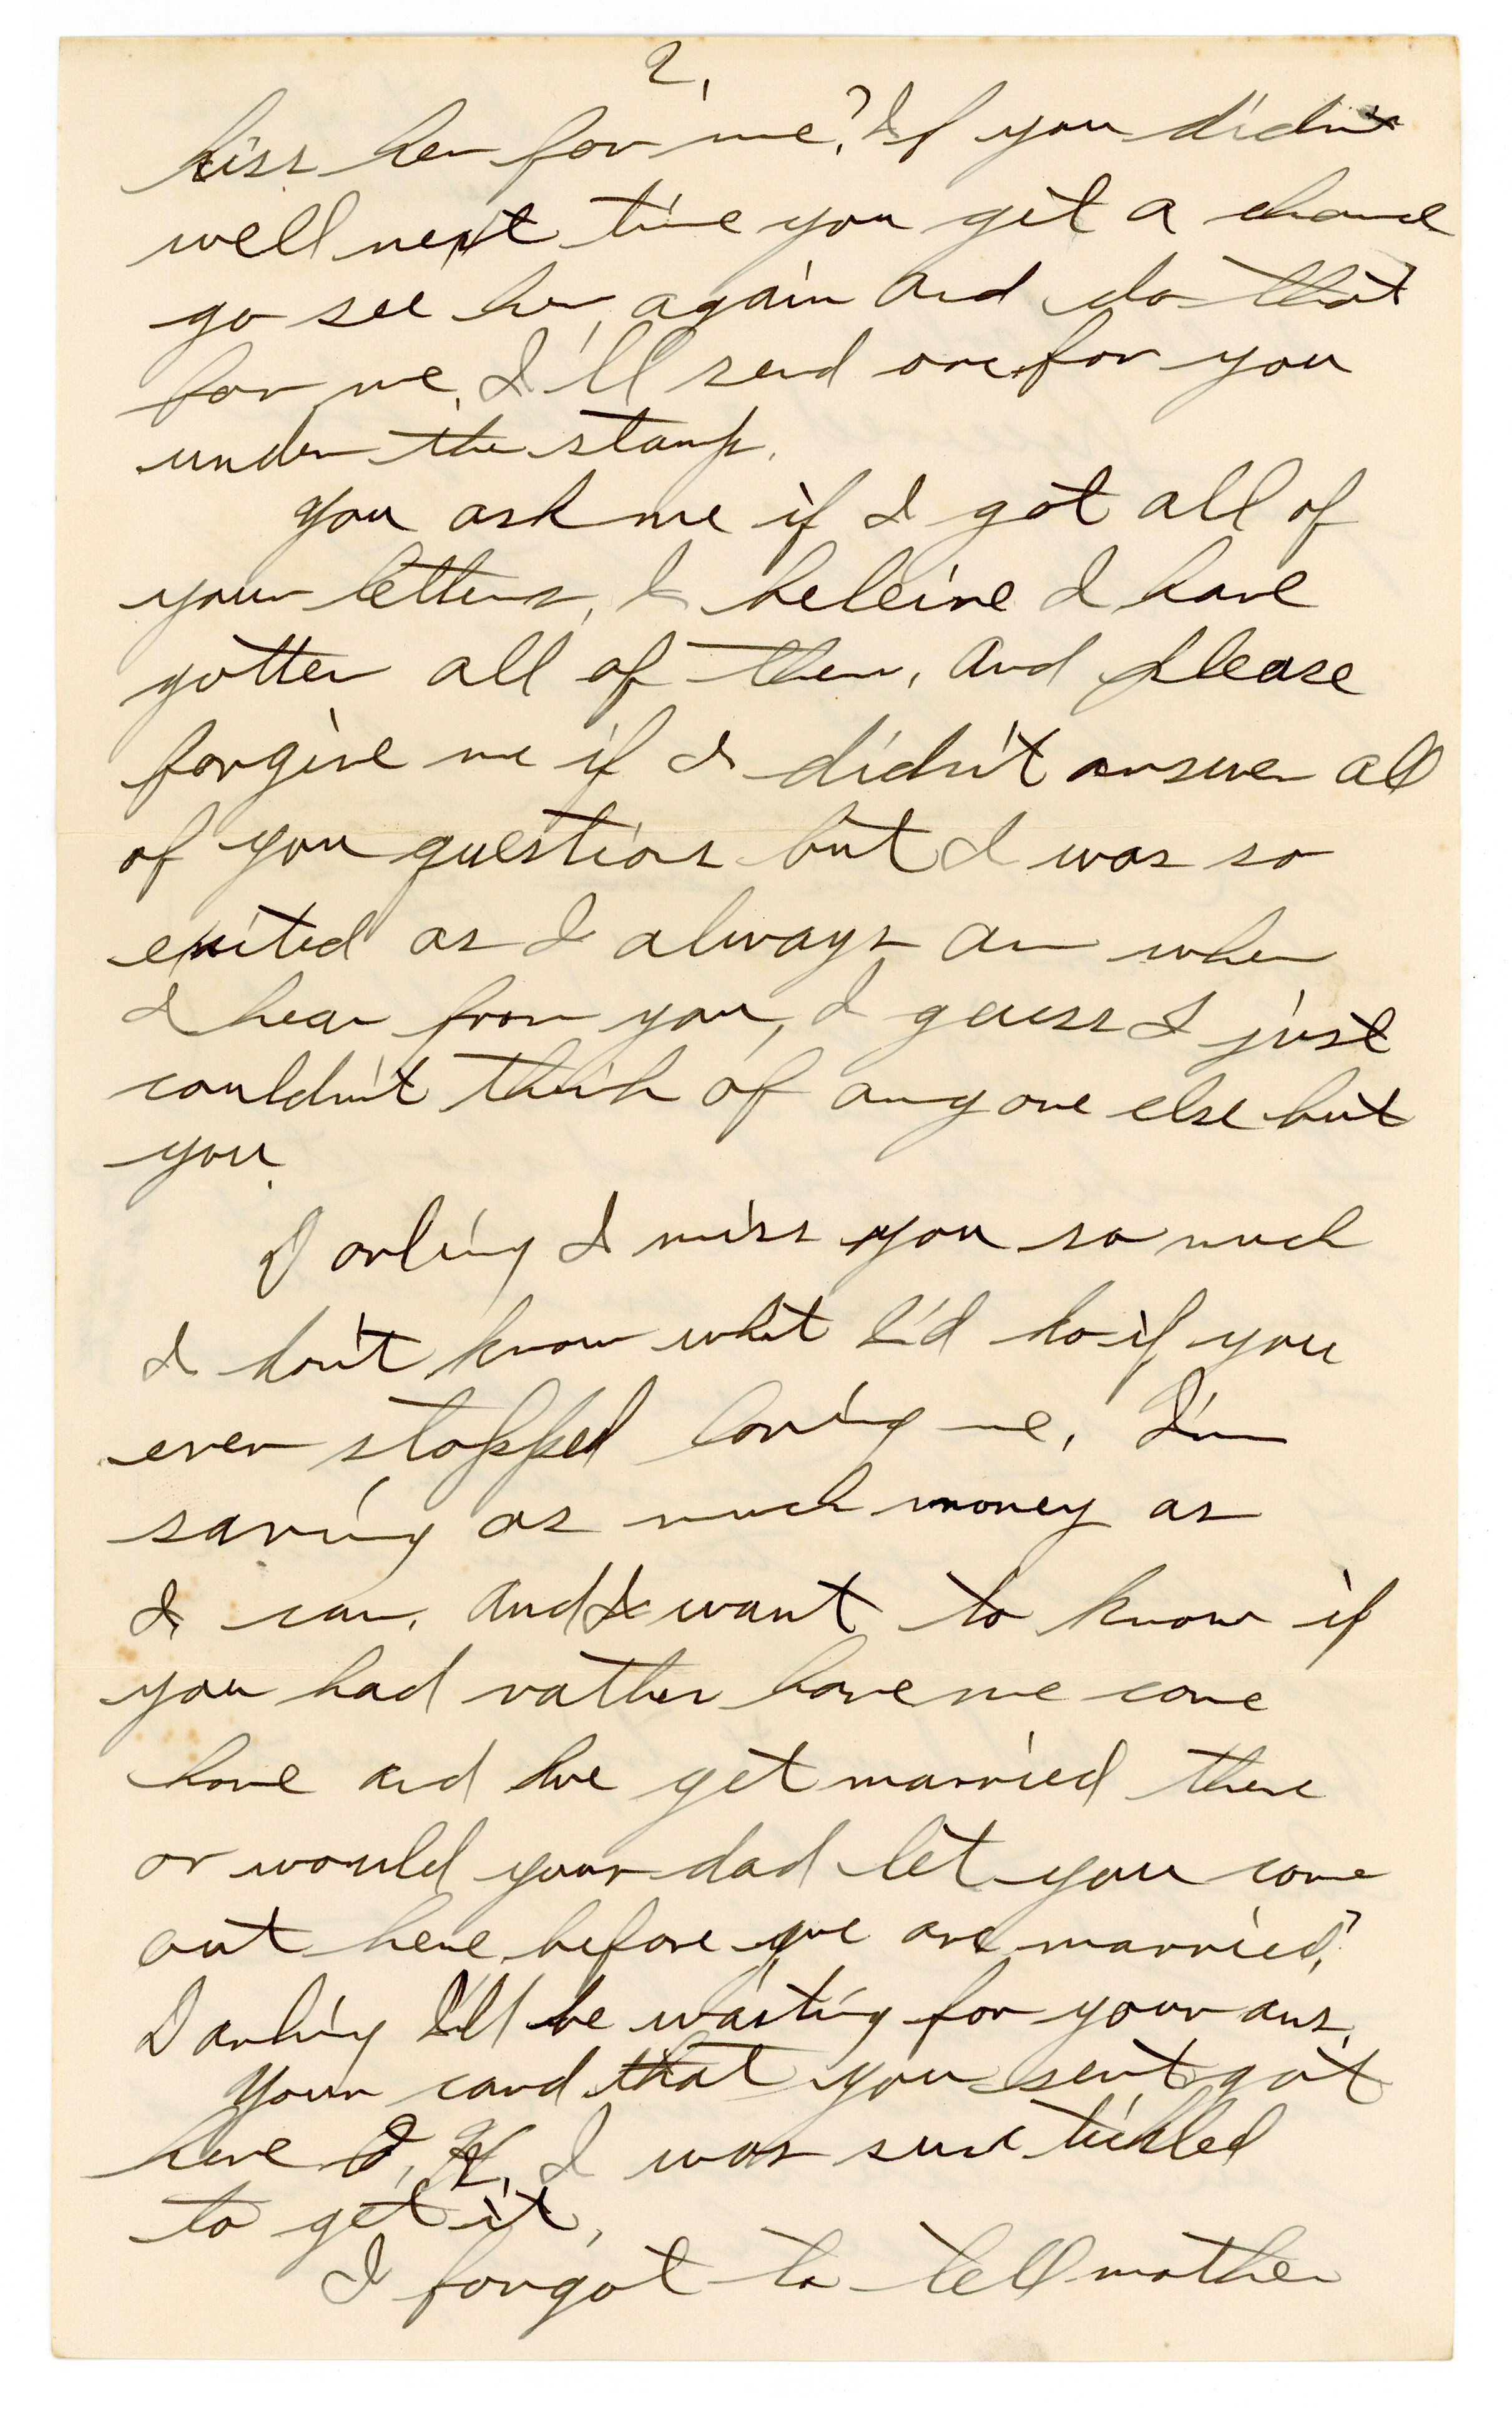 2.
kiss her for me? If you didn't
well next time you get a chance
go see her again and do that
for me, I'll send one for you
under the stamp.
You ask me if I got all of
your letters, I beleive I have
gotten all of them, and please
forgive me if I didn't answer all
of you questions but I was so
exited as I always am when
I hear from you, I guess I just
couldn't think of anyone else but
you.
Darling I miss you so much
I don't know what I'd do if you
ever stopped loving me, I'm
saving as much money as
I can, and I want to know if
you had rather have me come
home and we get married there
or would your dad let you come
out here before we are married?
Darling I'll be waiting for your ans.
Your card that you sent got
here O.K. I was sure tickled
to get it,
I forgot to tell mother